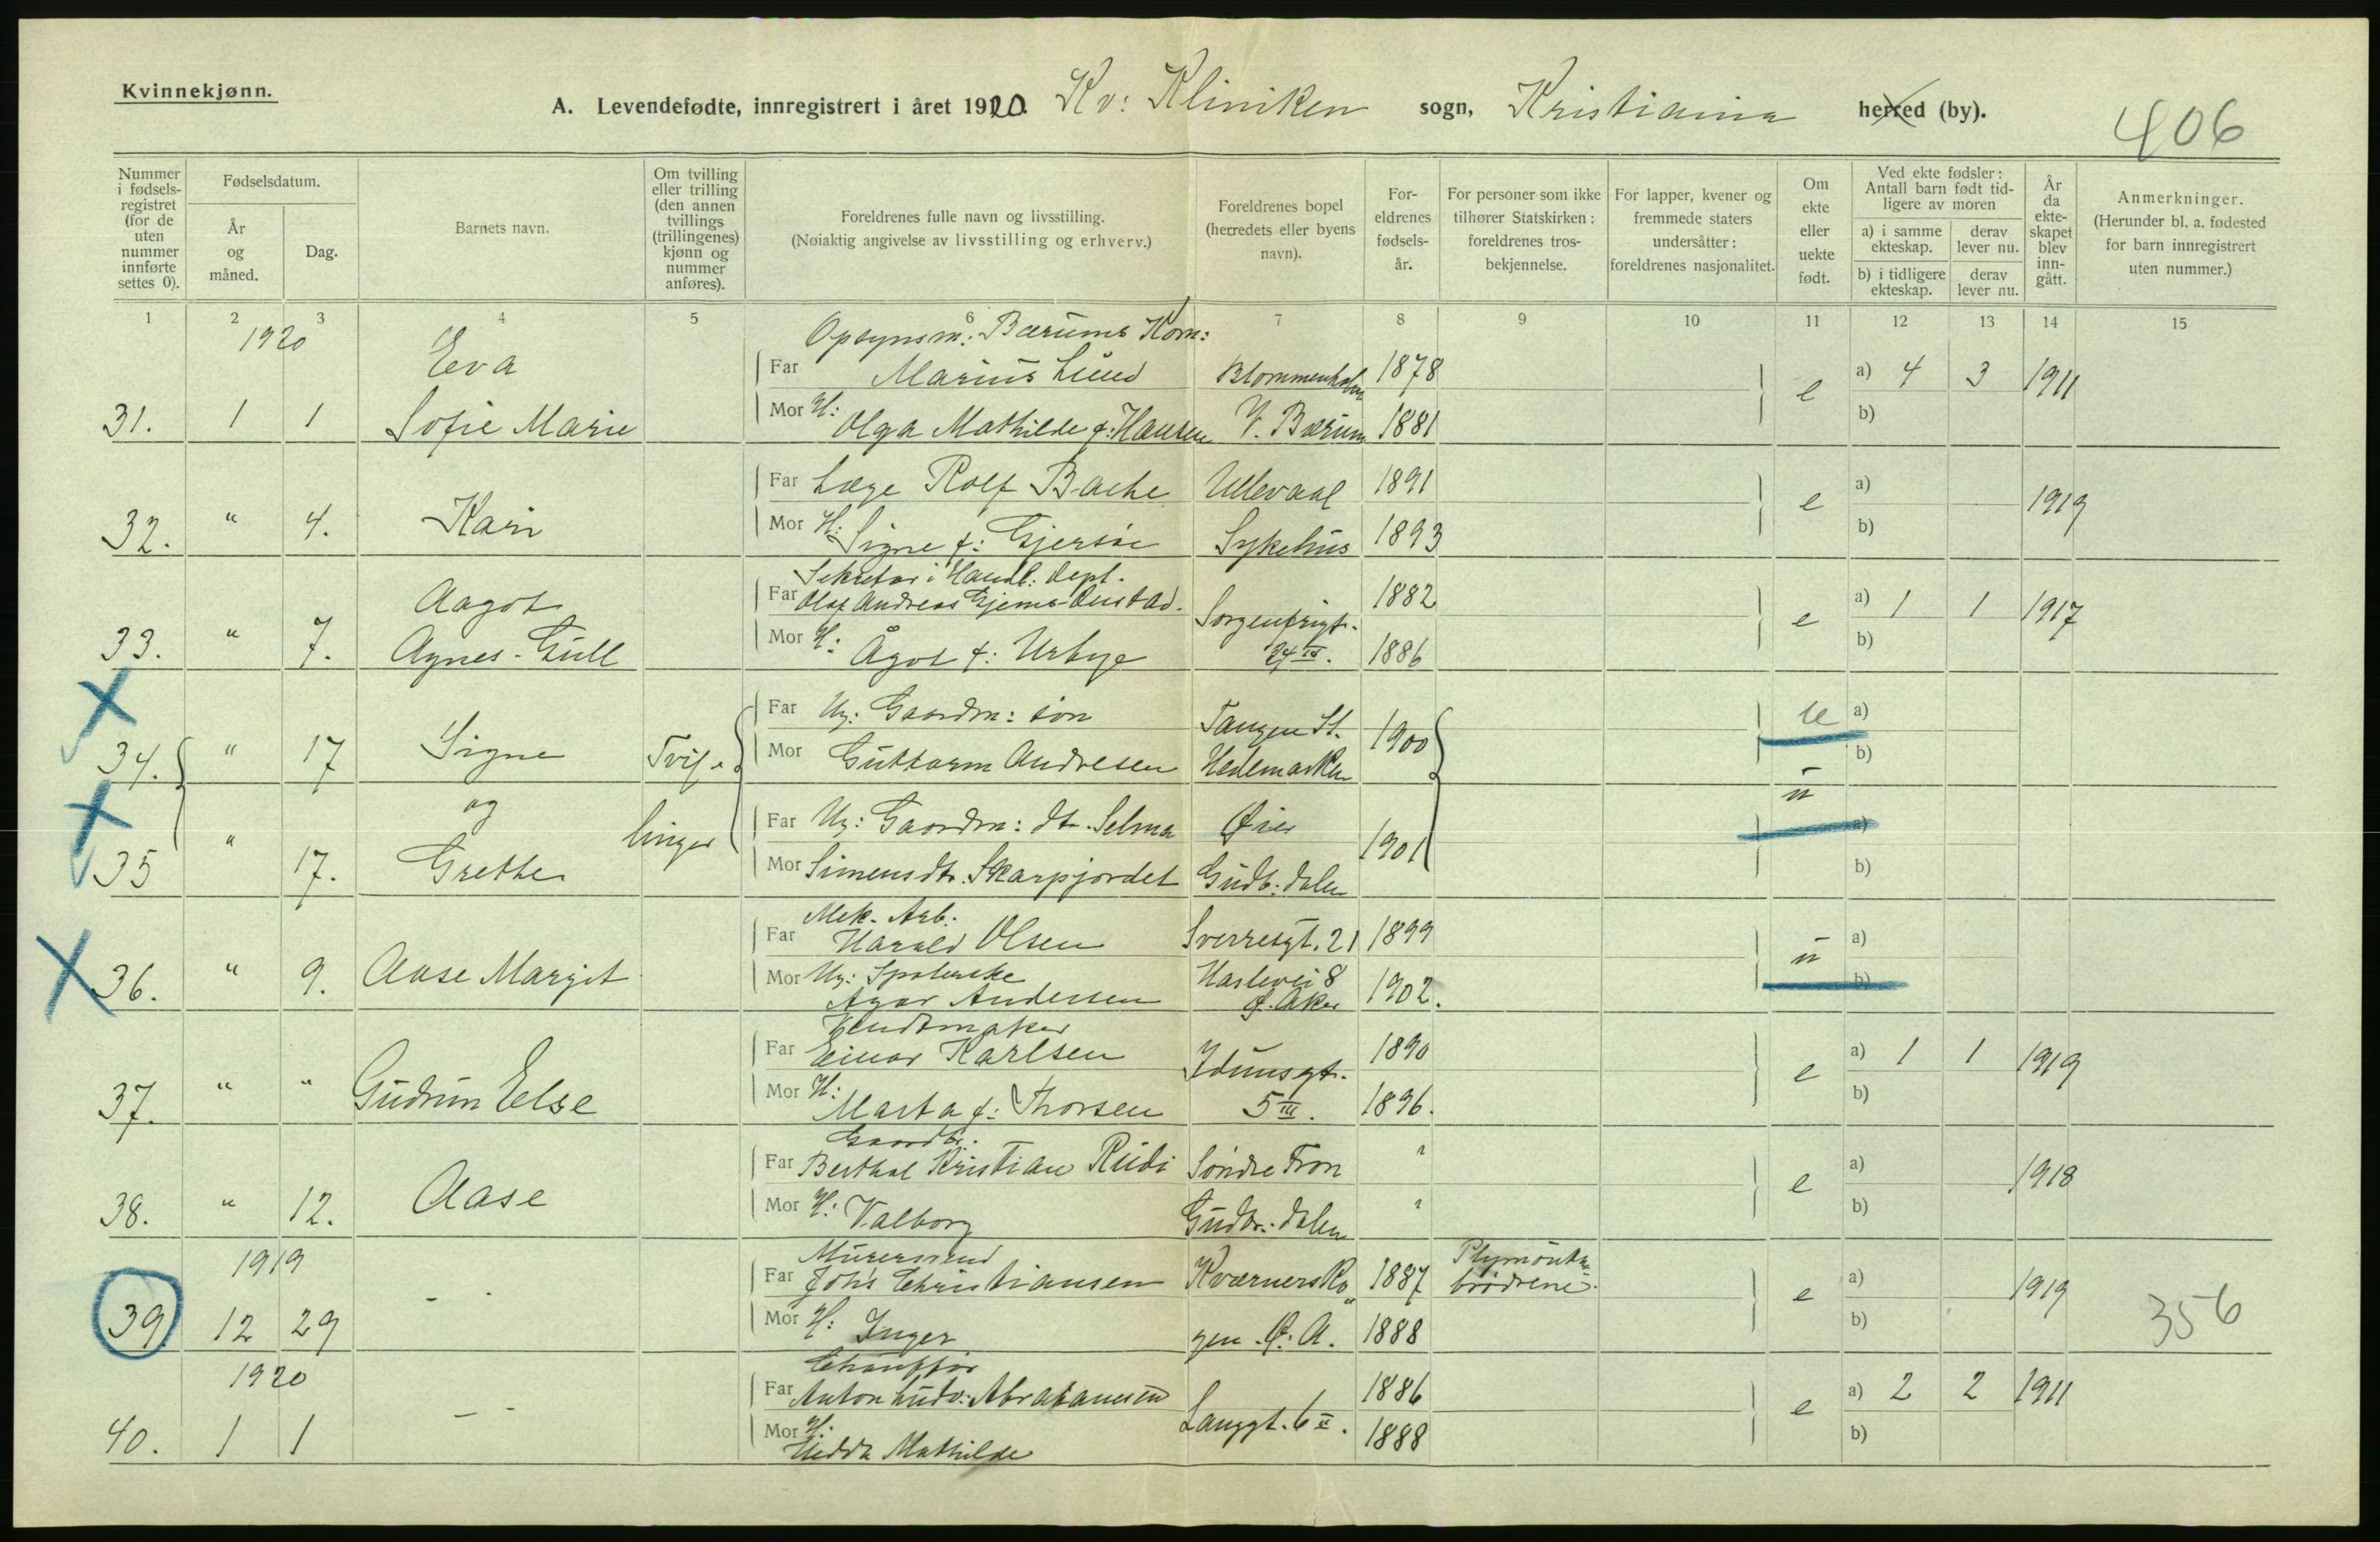 Kvinnekjønn.
A. Levendefødte, innregistrert i året 1920. Kv: Kliniken sogn, Kristiania herred (by).
406
Nummer i fødsels-registret (for de uten nummer innførte settes 0).
Fødselsdatum.
År og måned.
Dag.
Barnets navn.
Om tvilling eller trilling (den annen tvillings (trillingenes) kjønn og nummer anføres).
Foreldrenes fulle navn og livsstilling.
(Nøiaktig angivelse av livsstilling og erhverv.)
Foreldrenes bopel (herredets eller byens navn).
For-eldrenes fødsels-år.
For personer som ikke tilhører Statskirken: foreldrenes tros-bekjennelse.
For lapper, kvener og fremmede staters undersåtter: foreldrenes nasjonalitet.
Om ekte eller uekte født.
Ved ekte fødsler: Antall barn født tid-ligere av moren
a) i samme ekteskap.
derav lever nu.
b) i tidligere ekteskap.
derav lever nu.
År da ekte-skapet blev inn-gått.
Anmerkninger.
(Herunder bl. a. fødested for barn innregistrert uten nummer.)
1 2 3 4 5 6 7 8 9 10 11 12 13 14 15
1920 Opsynsm: Bærums Kom:
Eva Far Marius Lund Blommenholm 1878 e a) 4 3 1911
31. 1 1 Sofie Marie Mor H: Olga Mathilde f: Hansen V. Bærum 1881 b)
Far Læge Rolf Bache Ullevaal 1891 e a) 1919
32. " 4. Kari Mor H: Signe f: Gjersøe Sykehus 1893 b)
Sekretær i Handl: dept.
Aagot Far Olaf Andreas Gjems-Onstad. Sorgenfrigt. 1882 e a) 1 1 1917
33. " 7. Agnes-Gull Mor H: Ågot f: Urbye 24 1886 b)
Far Ug: Gaardm: søn Tangen St. 1900 u a)
34. " 17 Signe Tvil Mor Guttorm Andresen Hedemarken b)
og linger Far Ug: Gaardm: dt. Selma Øier 1901 u a)
35 " 17. Grethe Mor Simensdtr. Skarpjordet Gudb: dalen b)
Mek. Arb.
Far Harald Olsen Sverresgt. 21 1899 u a)
36. " 9. Aase Margit Mor Ug: Spolerske Haslevei 8
Agar Andersen Ø. Aker 1902. b)
Far Einar Karlsen Idunsgt. 1890 e a) 1 1 1919
37. " " Gudrun Else Mor H: Marta f: Thorsen 5 III. 1896. b)
Gaardbr.
Far Berthel Kristian Rudi Søndre Fron " e a) 1918
38. " 12. Aase Mor H: Valborg Gudbr: dalen " b)
1919 Murersvend Plymouth-
Far Johs Christiansen Kværnersko 1887 brødrene. e a) 1919
39 12 29 - - Mor H: Inger gen. Ø. A. 1888 b) 356
1920 Chauffør
Far Anton Ludv: Abrahamsen Langgt. 6 II. 1886 e a) 2 2 1911
40. 1 1 - - Mor H: Hedda Mathilde 1888 b)